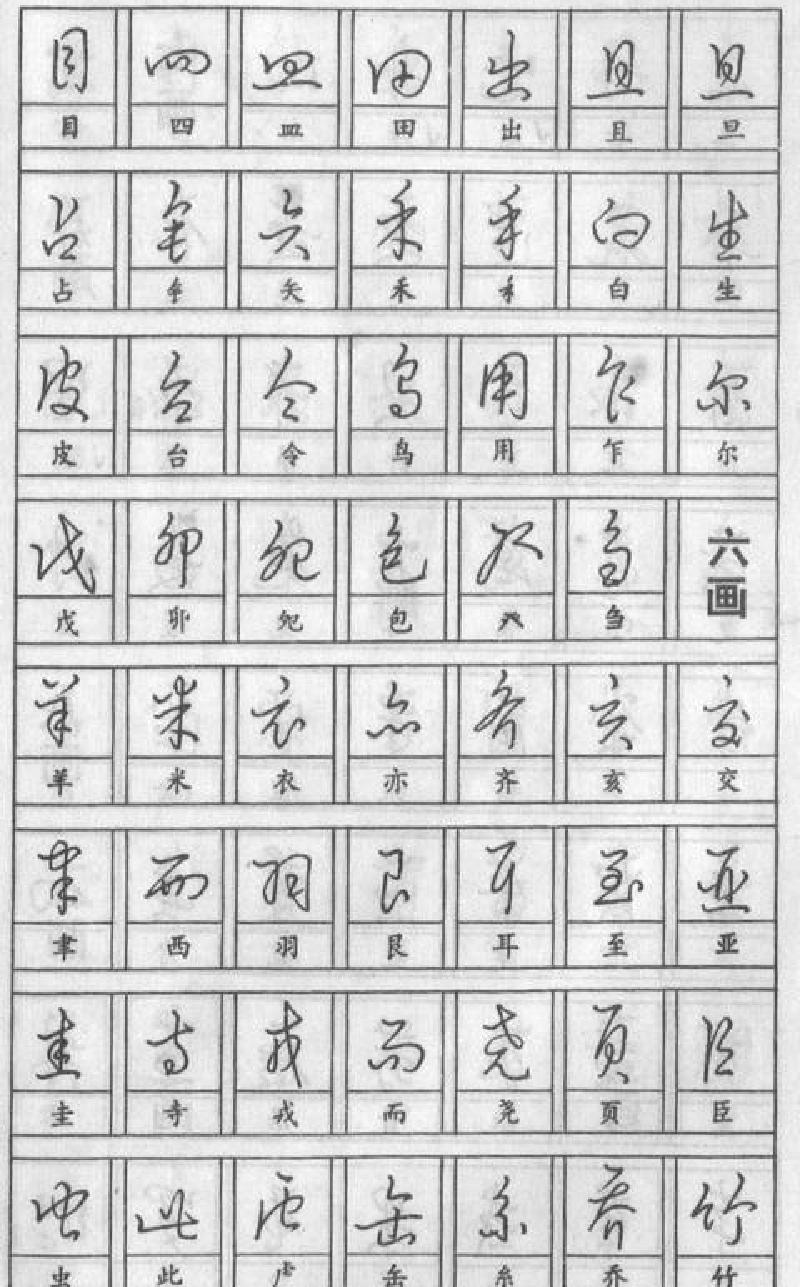 目 四 皿 田 出 且 旦
目 四 皿 田 出 且 旦
占 矢 禾 手 白 生
占 矢 禾 白 生
皮 台 令 鸟 用 乍 尔
皮 台 令 鸟 用 乍 尔
戊 卯 包 癶 刍 六画
戊 卯 包 癶 刍
羊 米 衣 亦 齐 亥 交
羊 米 衣 亦 齐 亥 交
聿 西 羽 艮 耳 至 亚
聿 西 羽 艮 耳 至 亚
圭 寺 戎 而 尧 页 臣
圭 寺 戎 而 尧 页 臣
虫 此 虍 缶 糸 乔 竹
虫 此 虍 缶 糸 乔 竹